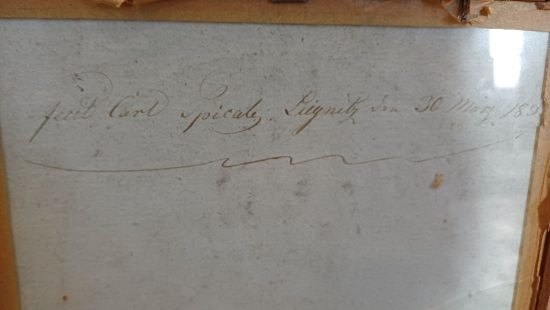 fecit Carl Spicale, Liegnitz den 30 März 18